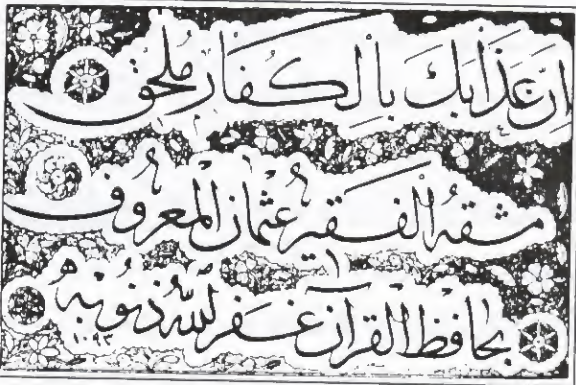 إِنَّ عَذَابَكَ بِالْكُفَّارِ مُلْحِقٌ
مشقهُ الفقير عثمان المعروف
بحافظ القرآن غفر الله ذنوبه
١٠٩٣